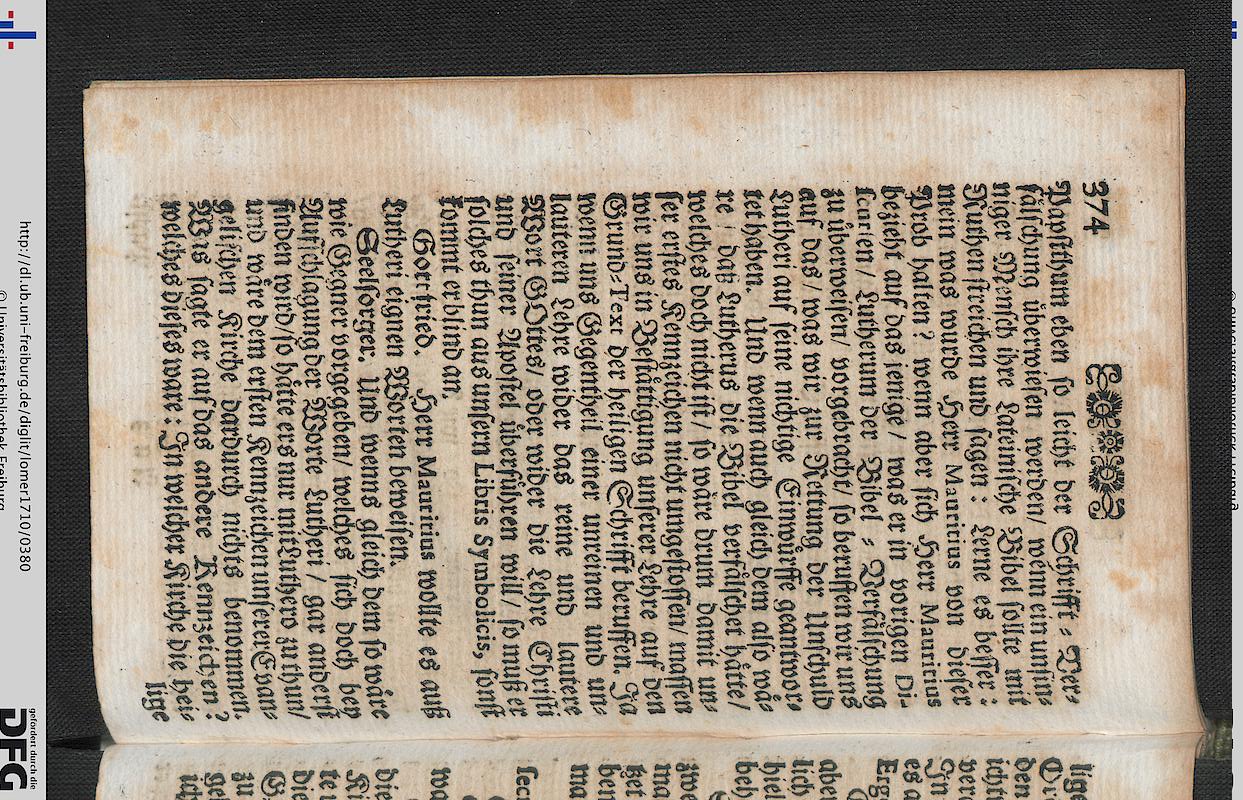 374
Papstthum eben so leicht der Schrifft-Ver-
fälschung überwiesen werden/ wenn ein unsin-
niger Mensch ihre Lateinische Bibel solte mit
Ruthen streichen und sagen: Lerne es besser:
mein was wurde Herr Mauritius von dieser
Prob halten? wenn aber sich Herr Mauritius
bezieht auf das jenige/ was er in vorigen Di-
scursen/ Lutherum der Bibel-Verfälschung
zu überweisen/ vorgebracht/ so beruffen wir uns
auf das/ was wir zur Rettung der Unschuld
Lutheri auf seine nichtige Einwürffe geantwor-
tet haben. Und wenn auch gleich dem also wä-
re/ daß Lutherus die Bibel verfälschet hätte/
welches doch nicht ist/ so wäre drum damit un-
ser erstes Kennzeichen nicht umgestossen/ massen
wir uns in Bestättigung unserer Lehre auf den
Grund-Text der heiligen Schrifft beruffen. Ja
wenn uns Gegentheil einer unreinen und un-
lauteren Lehre wider das reine und lautere
Wort GOttes/ oder wider die Lehre Christi
und seiner Apostel überführen will/ so muß er
solches thun aus unsern Libris Symbolicis, sonst
kommt er blind an.
Gottfried. Herr Mauritius wollte es auß
Lutheri eignen Worten beweisen.
Seelsorger. Und wenns gleich dem so wäre
wie Gegner vorgegeben/ welches sich doch bey
Aufschlagung der Worte Lutheri/ gar anderst
finden wird/ so hätte ers nur mit Luthero zu thun/
und wäre dem ersten Kennzeichen unserer Evan-
gelischen Kirche dardurch nichts benommen.
Was sagte er auf das andere Kennzeichen?
welches dieses ware: In welcher Kirche die hei-
lige
http://dl.ub.uni-freiburg.de/diglit/lomer1710/0380
© Universitätsbibliothek Freiburg
gefördert durch die
DFG